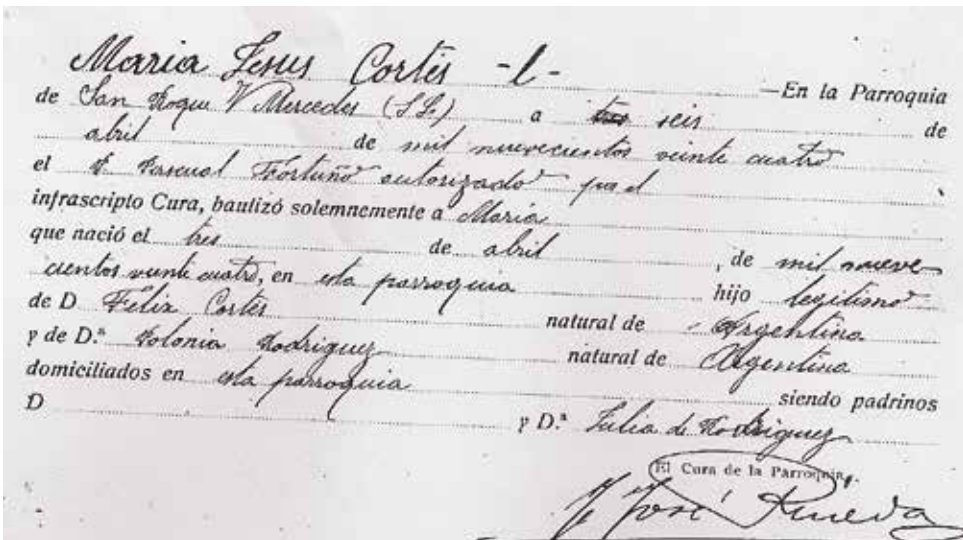 Maria Jesus Cortés -l- —En la Parroquia
de San Roque V Mercedes (S.L.) a tres seis de
abril de mil nuevecientos veinte cuatro
el P. Pascual Fortuño autorizado por el
infrascripto Cura, bautizó solemnemente a Maria
que nació el tres de abril , de mil nueve
cientos veinte cuatro, en esta parroquia hijo legitimo
de D Felix Cortés natural de Argentina
y de D.ª Polonia Rodriguez natural de Argentina
domiciliados en esta parroquia siendo padrinos
D y D.ª Julia de Rodriguez
El Cura de la Parroquia.
José Pineda